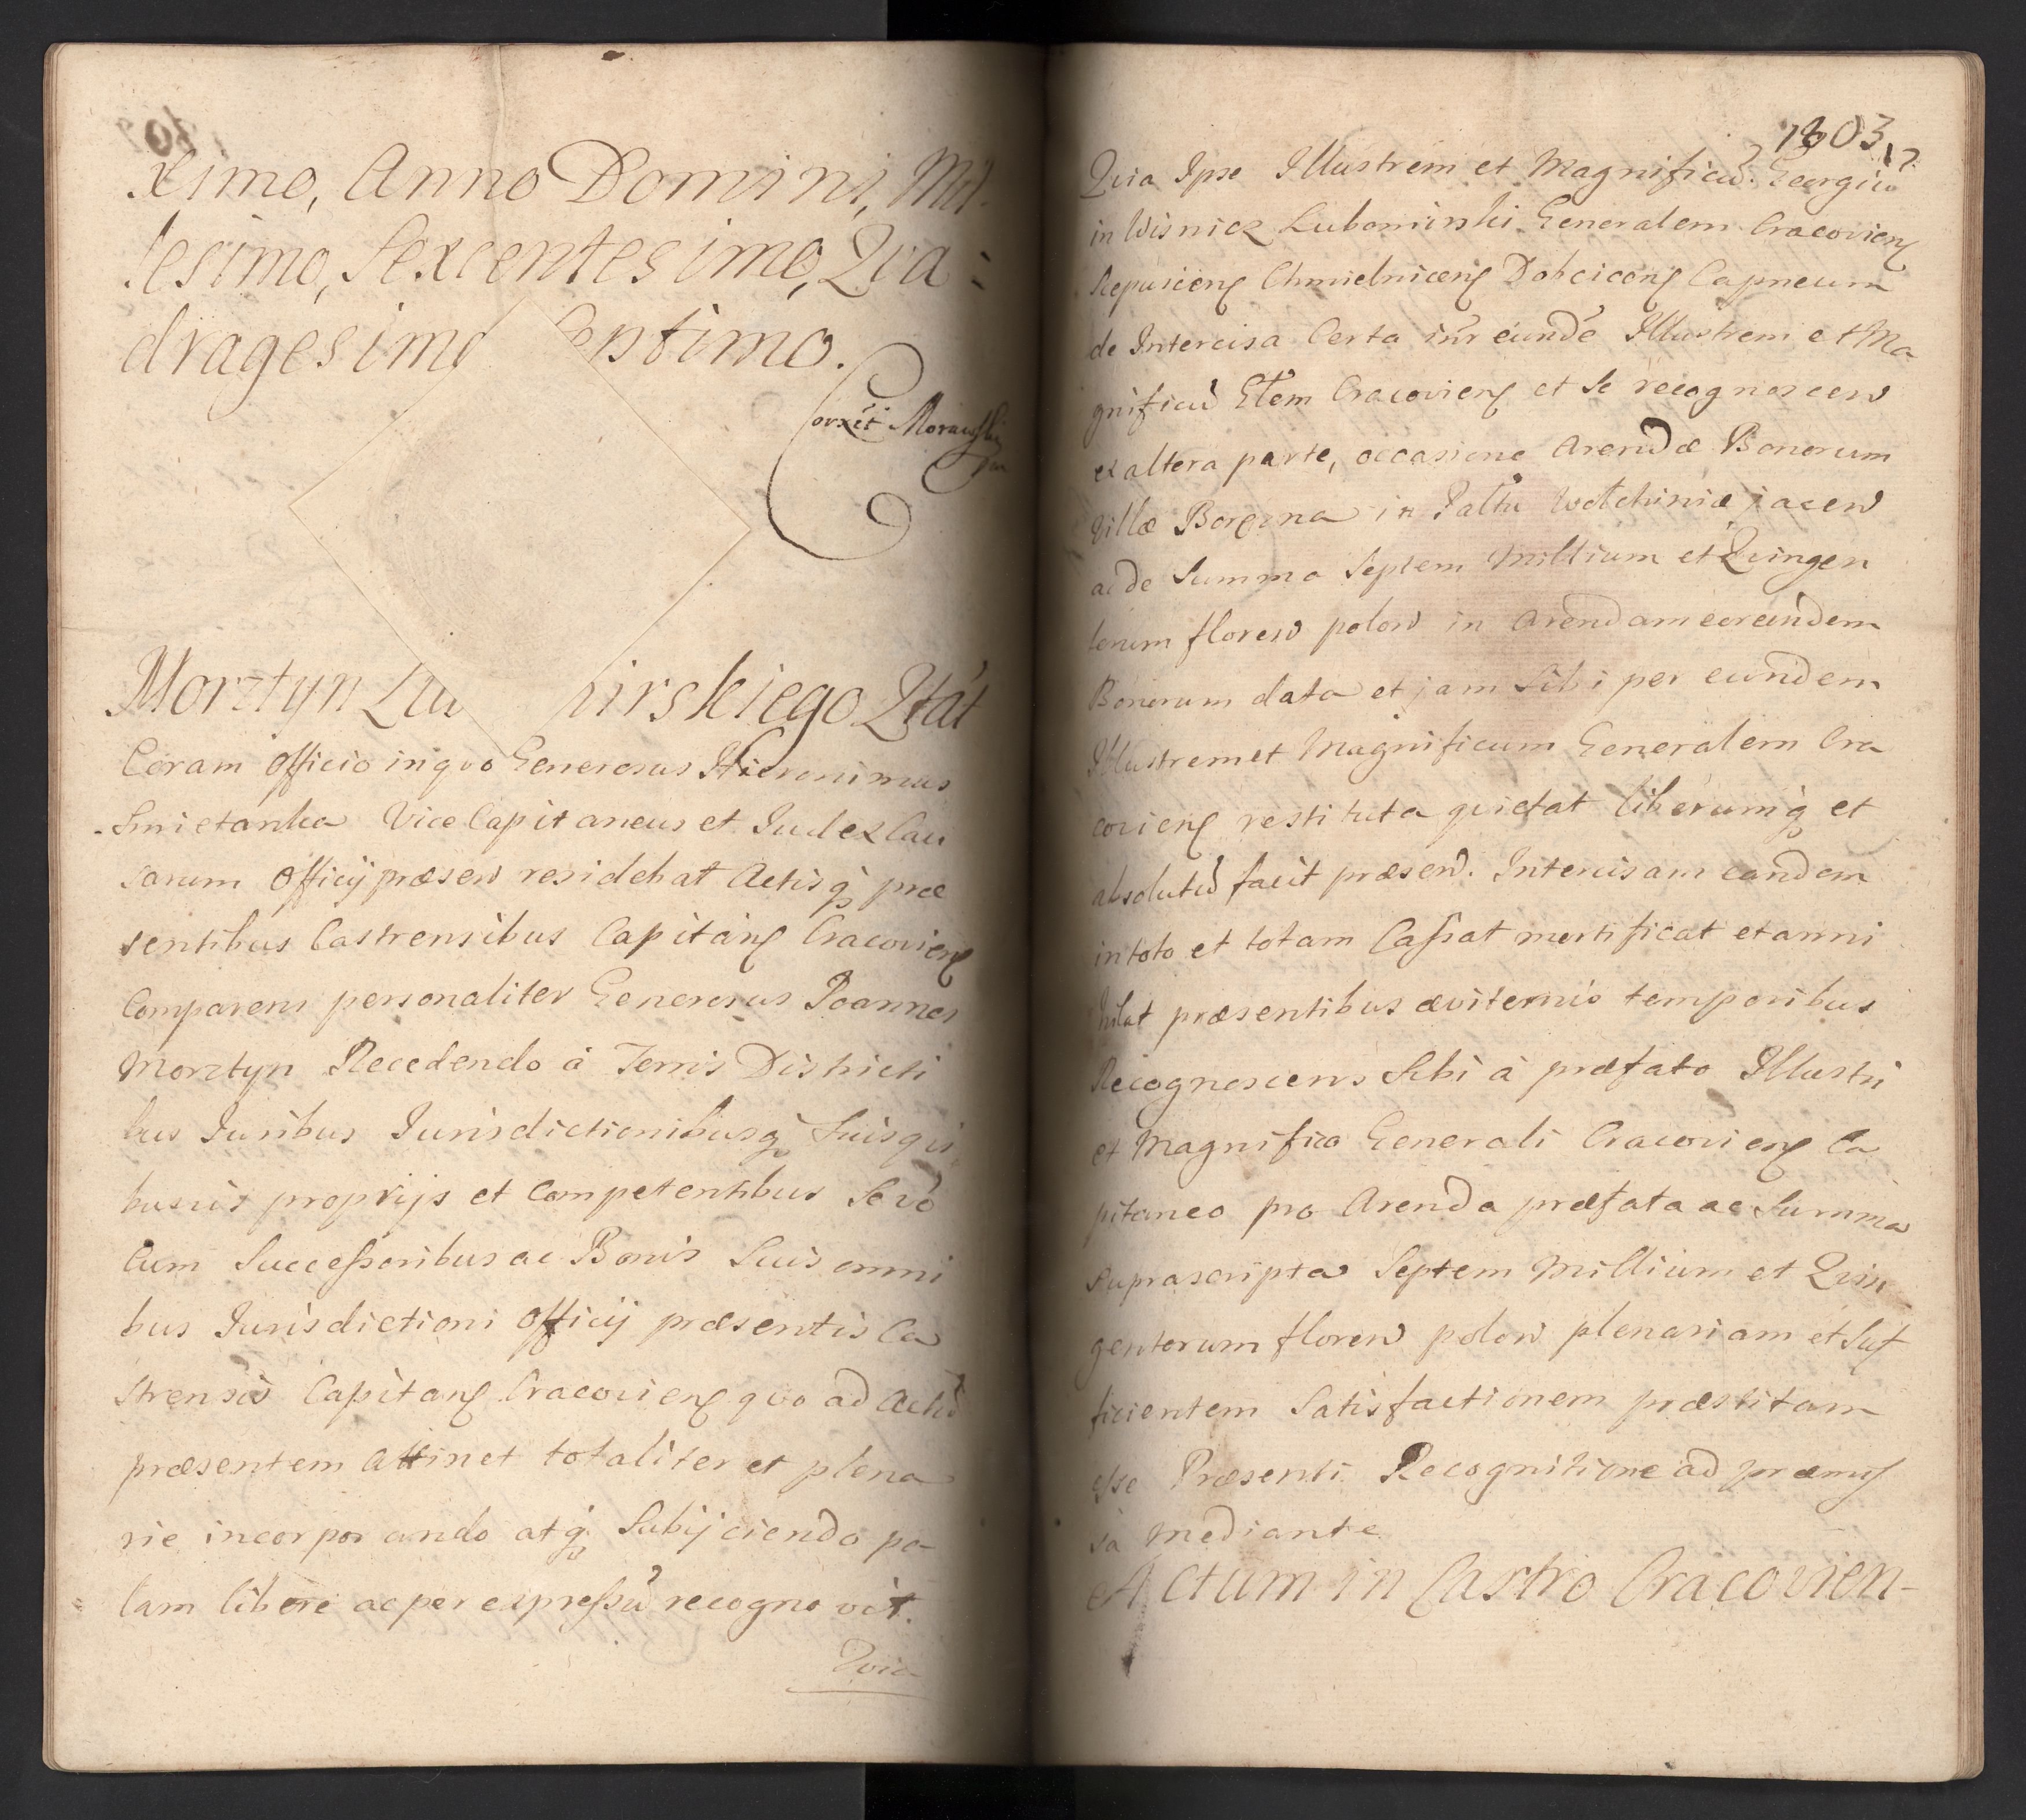 ximo, Anno Domini, Mil-
lesimo, Sexcentesimo, Qva=
dragesimo Septimo.
Corrxit Morawski
Morztyn Lu irskiego Qtát
Coram Officio inqvo Generosus Hieronimus
Smietanka Vice Capitaneus et Iudex Cau
sarum Officij præsens residebat Actisq præ
sentibus Castrensibus Capitan Cracovien
Comparens personaliter Generosus Joannes
Morztyn Recedendo à Terris Districti
bus Iuribus Iurisdictionibusq Suisqvi
busvis proprijs et Competentibus Se vó
Cum Successoribus ac Bonis Suis omni
bus Iurisdictioni Officij præsentis Ca
strensis Capitan Cracovien qvo ad Actū
præsentem Attinet totaliter et plena
rie incorporando atq Subijciendo pa-
lam liberè ac per expressū recognovit.
Qvia
1803
17.
Qvia Ipse Illustrem et Magnificū Georgiū
in Wisnicz Lubomirski Generalem Cracovien
Sepusien Chmielnicen Dobcicen Capneum
de Intercisa Certa intr eundē Illustrem et Ma
gnificū Glem Cracovien et Se recognoscen
ex altera parte, occasione Arendæ Bonorum
Villæ Borezna in Paltu Wolchiniæ jacen
ac de Summa Septem Millium et Qvingen
torum floren polon in Arendam eorundem
Bonorum data et jam Sibi per eundem
Illustrem et Magnificum Generalem Cra
covien restituta qvietat liberumq et
absolutū facit præsen. Intercisam eandem
in toto et totam Cassat mortificat et anni
hilat præsentibus æviternis temporibus
Recognoscens Sibi à præfato Illustri
et Magnifico Generali Cracovien Ca
pitaneo pro Arenda præfata ac Summa
Suprascripta Septem Millium et Qvin
gentorum floren polon plenariam et Suf
ficientem Satisfactionem præstitam
esse Præsenti Recognitione ad præmis
sa mediante.
Actum in Castro Cracovien-